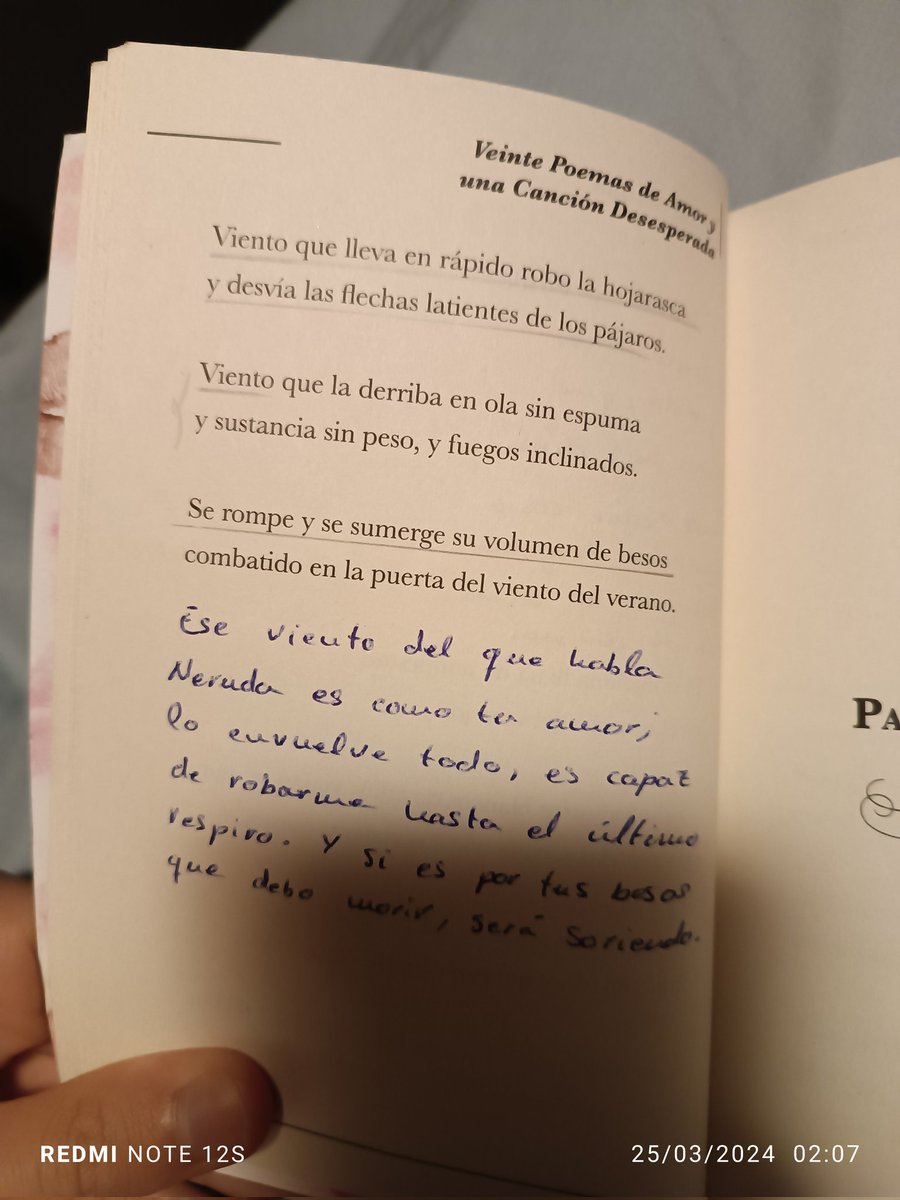 Veinte Poemas de Amor y
una Canción Desesperada
Viento que lleva en rápido robo la hojarasca
y desvía las flechas latientes de los pájaros.
Viento que la derriba en ola sin espuma
y sustancia sin peso, y fuegos inclinados.
Se rompe y se sumerge su volumen de besos
combatido en la puerta del viento del verano.
Ese viento del que habla
Neruda es como tu amor,
lo envuelve todo, es capaz
de robarme hasta el último
respiro. Y si es por tus besos
que debo morir, será soriendo.
PA
REDMI NOTE 12S
25/03/2024 02:07